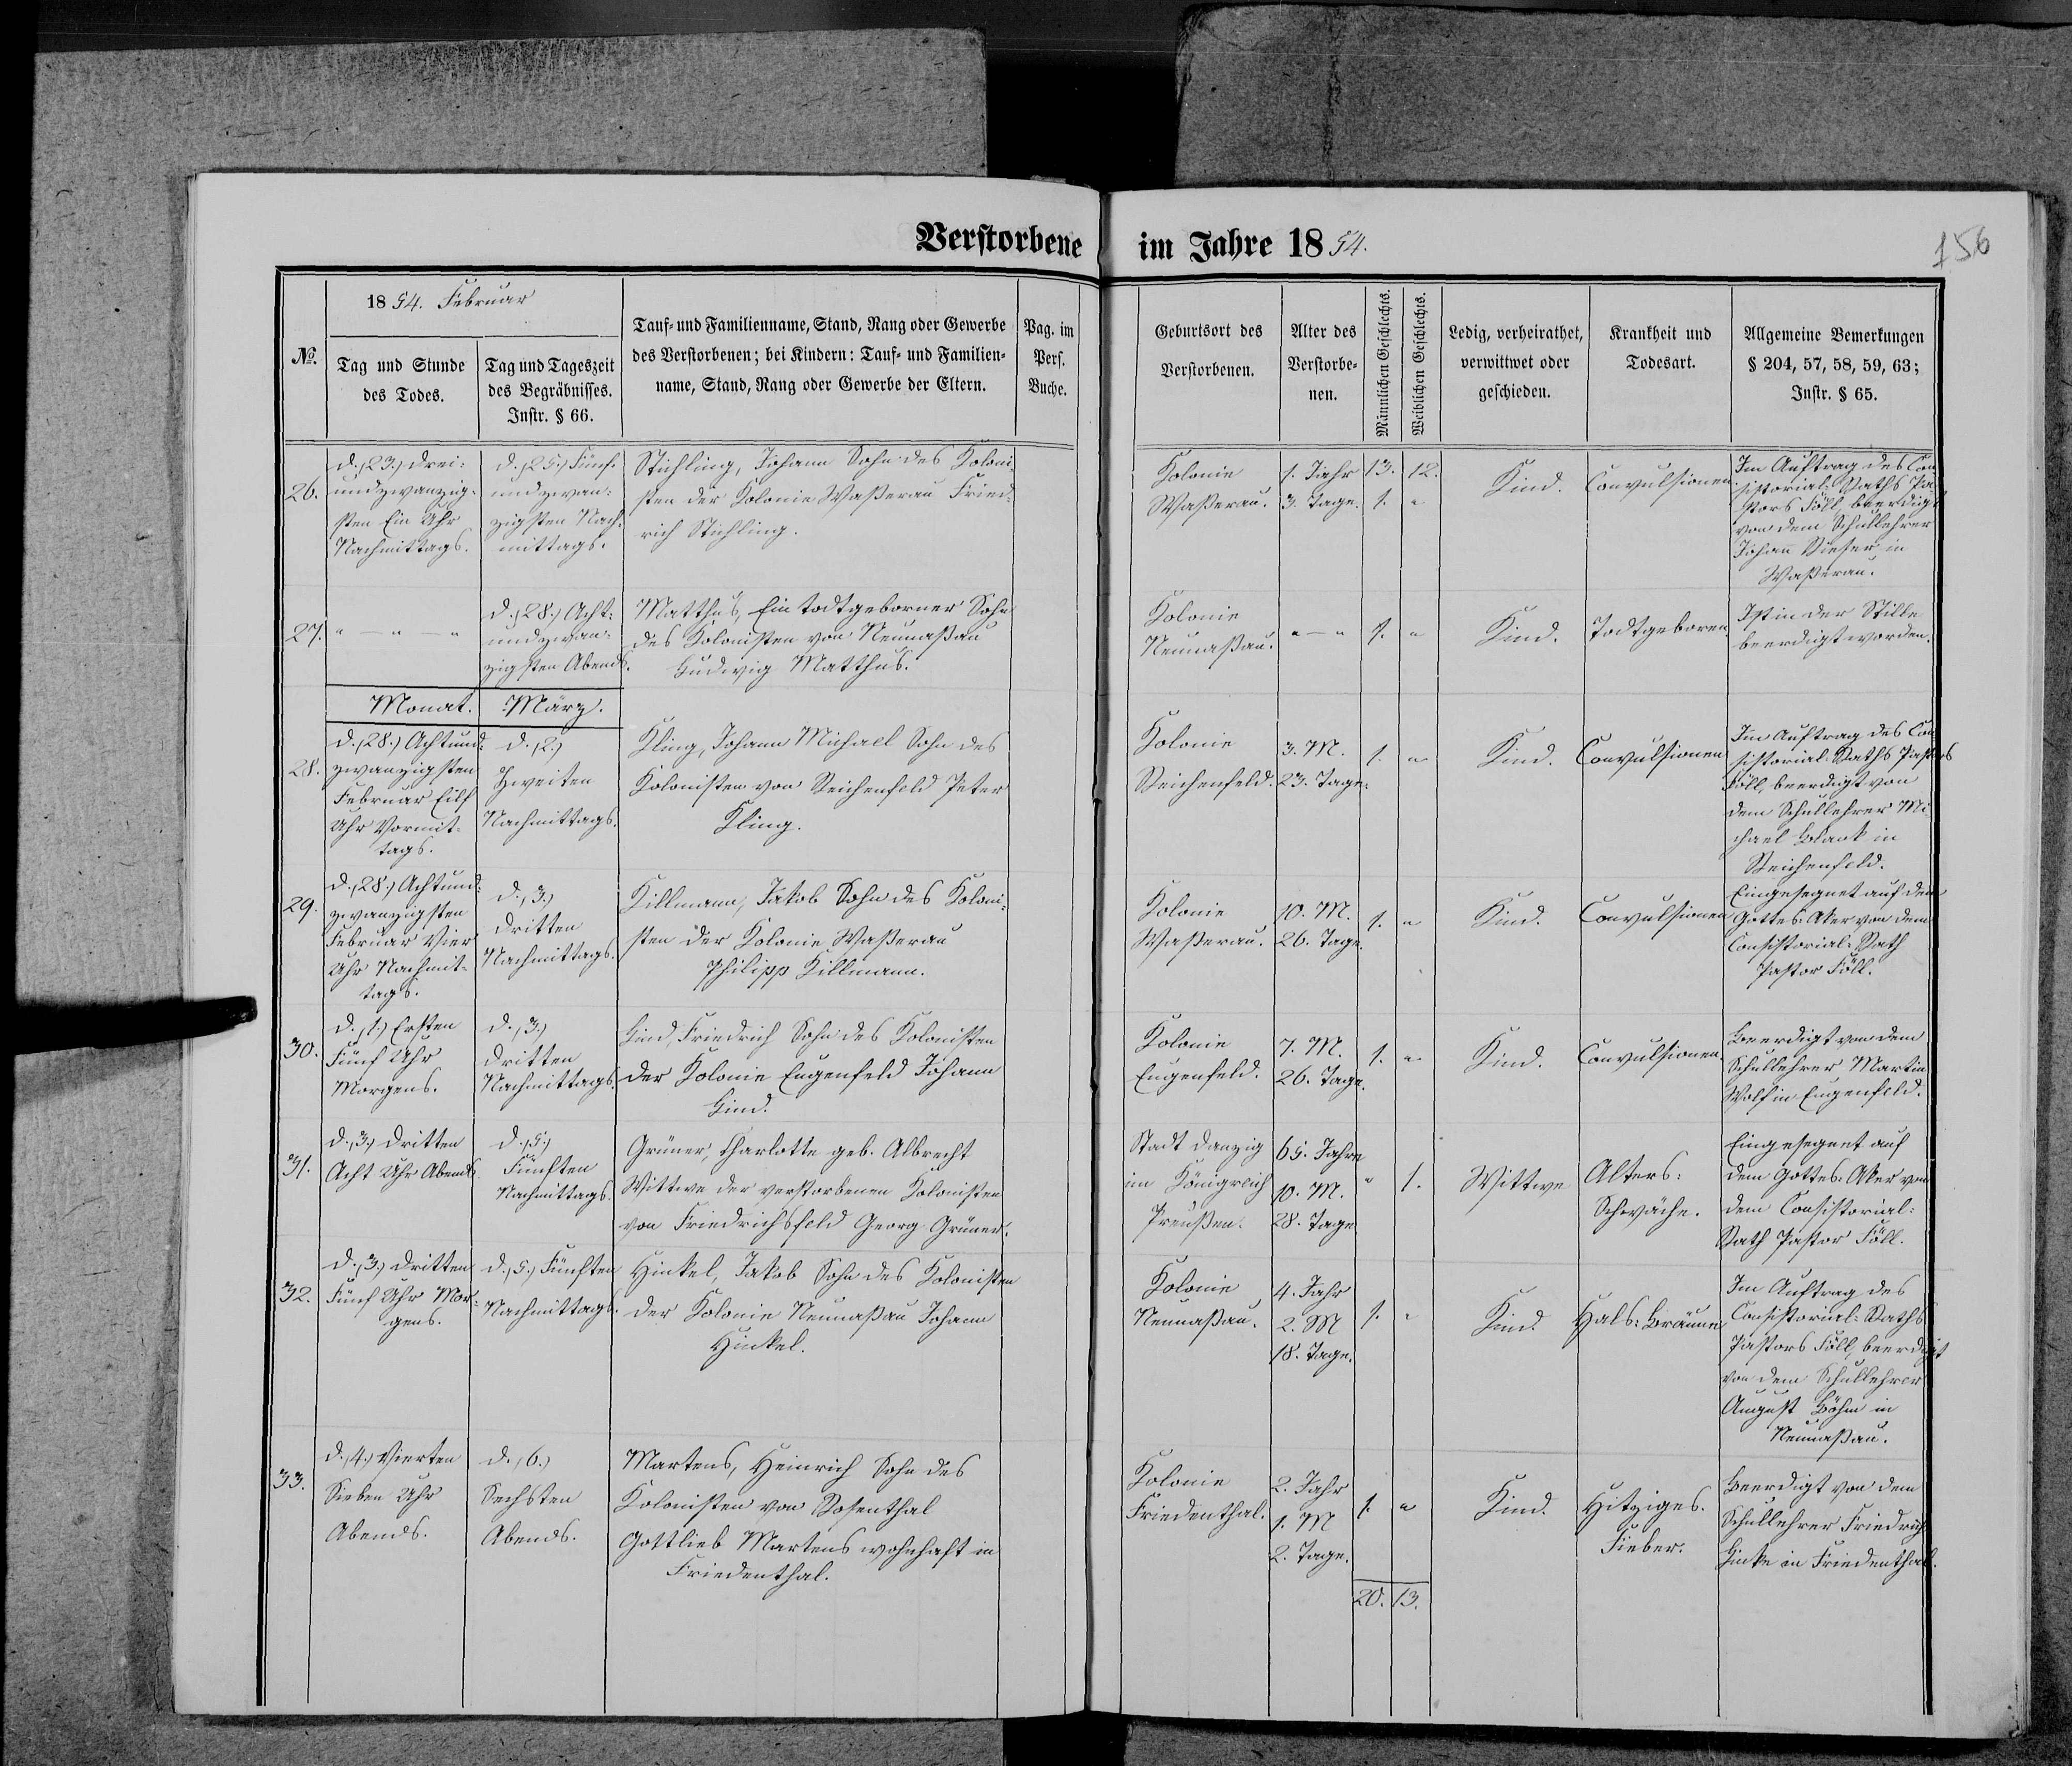 Verstorbene im Jahre 1854.
156
1854. Februar
No.
Tag und Stunde
des Todes.
Tag und Tageszeit
des Begräbnisses.
Instr. § 66.
Tauf- und Familienname, Stand, Rang oder Gewerbe
des Verstorbenen; bei Kindern: Tauf- und Familien-
name, Stand, Rang oder Gewerbe der Eltern.
Pag. im
Pers.
Buche.
Geburtsort des
Verstorbenen.
Alter des
Verstorbe-
nen.
Männlichen Geschlechts.
Weiblichen Geschlechts.
Ledig, verheirathet,
verwittwet oder
geschieden.
Krankheit und
Todesart.
Allgemeine Bemerkungen
§ 204, 57, 58, 59, 63;
Instr. § 65.
26.
d. (23.) Drei-
undzwanzig-
sten Ein Uhr
Nachmittags.
d. (25.) Fünf-
undzwan-
zigsten Nach-
mittags.
Stichling, Johann Sohn des Koloni-
sten der Kolonie Waßerau Fried-
rich Stichling.
Kolonie
Waßerau.
1. Jahr
3. Tage.
13. 12.
1. "
Kind.
Convulsionen.
Im Auftrag des Con-
sistorial-Raths Pa-
stors Föll, beerdigt
von dem Schullehrer
Johann in
Waßerau.
27.
" — " — "
d. (28.) Acht-
undzwan-
zigsten Abends.
Matthus, Ein todtgeborner Sohn
des Kolonisten von Neunaßau
Ludwig Matthus.
Kolonie
Neunaßau.
" — "
1. "
Kind.
Todtgeboren.
Ist in der Stille
beerdigt worden.
Monat. März.
28.
d. (28.) Achtund-
zwanzigsten
Februar Eilf
Uhr Vormit-
tags.
d. (2.)
Zweiten
Nachmittags.
Kling, Johann Michael Sohn des
Kolonisten von Reichenfeld Peter
Kling.
Kolonie
Reichenfeld.
3. M.
23. Tage.
1. "
Kind.
Convulsionen
Im Auftrag des Con-
sistorial-Raths Pastors
Föll, beerdigt von
dem Schullehrer Mi-
chael Blank in
Reichenfeld.
29.
d. (28.) Achtund-
zwanzigsten
Februar Vier
Uhr Nachmit-
tags.
d. (3.)
Dritten
Nachmittags.
Killmann, Jakob Sohn des Koloni-
sten der Kolonie Waßerau
Philipp Killmann.
Kolonie
Waßerau.
10. M.
26. Tage.
1. "
Kind.
Convulsionen
Eingesegnet auf dem
Gottes-Aker von dem
Consistorial-Rath
Pastor Föll.
30.
d. (1.) Ersten
Fünf Uhr
Morgens.
d. (3.)
Dritten
Nachmittags.
Hind, Friedrich Sohn des Kolonisten
der Kolonie Eugenfeld Johann
Hind.
Kolonie
Eugenfeld.
7. M.
26. Tage.
1. "
Kind.
Convulsionen.
Beerdigt von dem
Schullehrer Martin
Wolf in Eugenfeld.
31.
d. (3.) Dritten
Acht Uhr Abends.
d. (5.)
Fünften
Nachmittags.
Grüner, Charlotte geb. Albrecht
Wittwe der verstorbenen Kolonisten
von Friedrichsfeld Georg Grüner.
Stadt Danzig
im Königreich
Preußen.
65. Jahre
10. M.
28. Tage
" 1.
Wittwe
Alters-
Schwäche.
Eingesegnet auf
dem Gottes-Aker von
dem Consistorial-
Rath Pastor Föll.
32.
d. (3.) Dritten
Fünf Uhr Mor-
gens.
d. (5.) Fünften
Nachmittags.
Hinkel, Jakob Sohn des Kolonisten
der Kolonie Neunaßau Johann
Hinkel.
Kolonie
Neunaßau.
4. Jahr
2. M
18. Tage.
1. "
Kind.
Hals-Bräune
Im Auftrag des
Consistorial-Raths
Pastors Föll, beerdigt
von dem Schullehrer
August Böhm in
Neunaßau.
33.
d. (4.) Vierten
Sieben Uhr
Abends.
d. (6.)
Sechsten
Abends.
Martens, Heinrich Sohn des
Kolonisten von Rosenthal
Gottlieb Martens wohnhaft in
Friedenthal.
Kolonie
Friedenthal.
2. Jahr
1. M
2. Tage.
1. "
Kind.
Hitziges.
Fieber.
Beerdigt von dem
Schullehrer Friedrich
in Friedenthal.
20. 13.